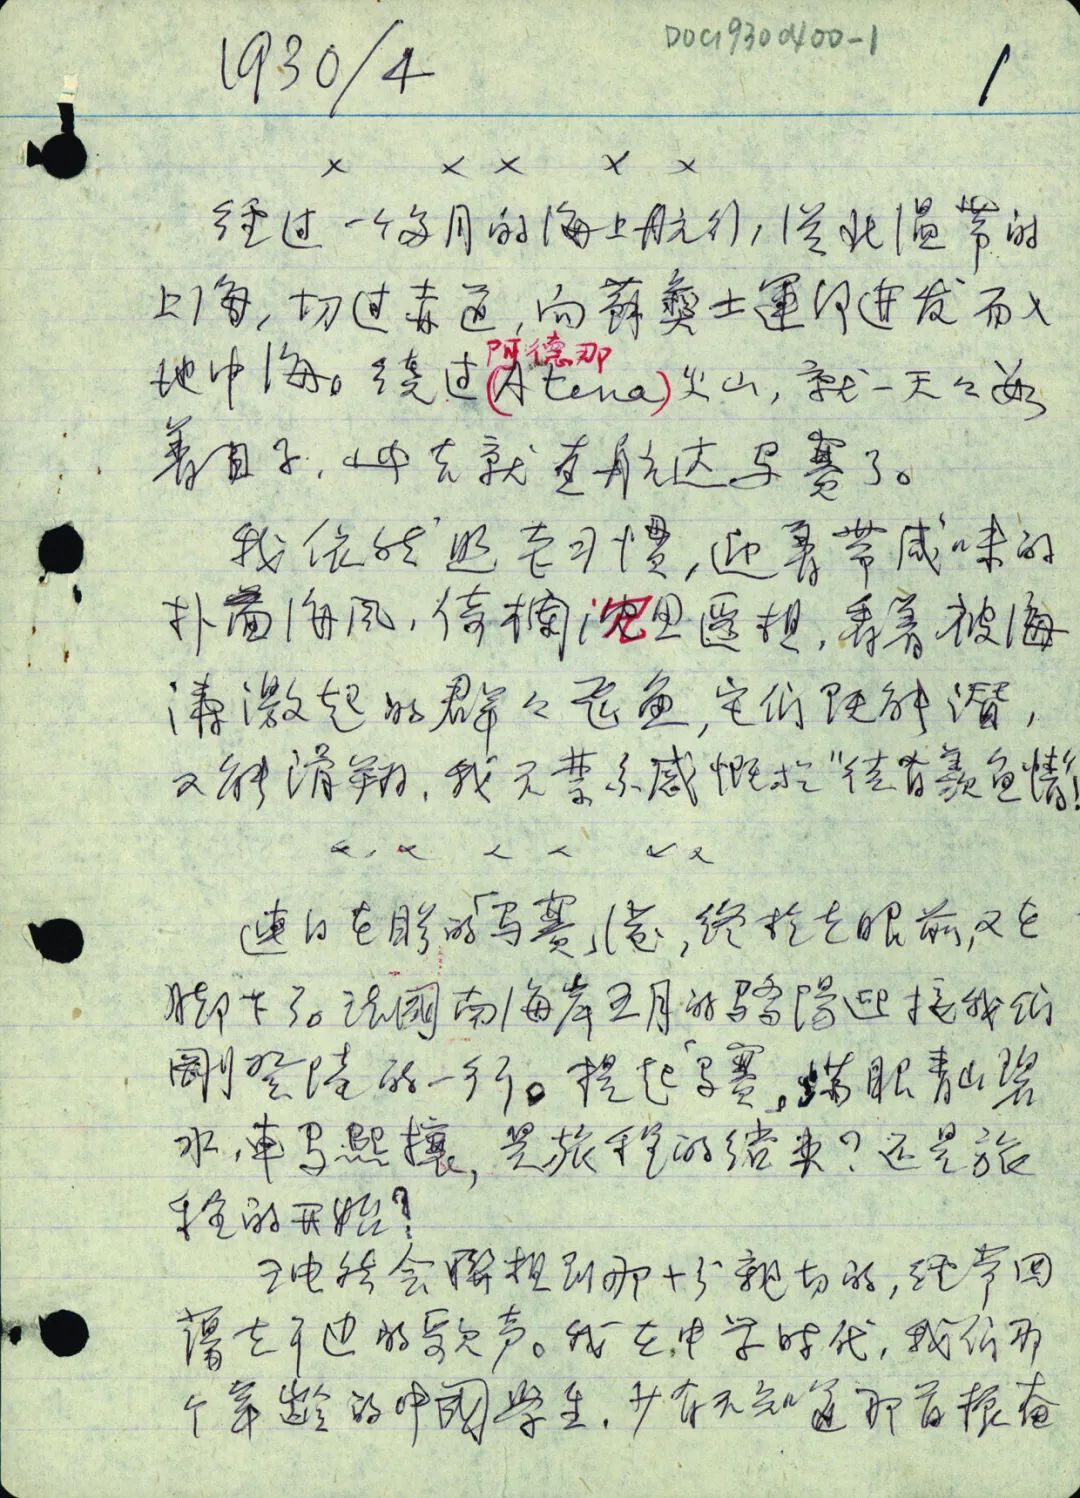 DOC1930d400-1
1930/4
1
× × × × ×
经过一个多月的海上航行，从北温带的
上海，切过赤道，向蘇彝士運河进发而入
地中海。绕过(Atena)火山，就一天天数
阿德那
着日子，去就直航达马赛了。
我依然照老习惯，迎着带咸味的
扑面海风，倚栏沈思遥想，看着被海
涛激起的群々飞鱼，它们既能潜，
又能滑翔，我不禁亦感慨於“徒有羡鱼情！
× × × × × ×
連日在盼的「马赛」港，终於在眼前，又在
脚下了。法國南海岸五月的骄陽迎接我们
剛登陸的一行。提起「马赛」，满眼青山碧
水，車马熙攘，是旅程的结束？还是旅
程的开始？
自然会聯想到那十分親切的，经常回
蕩在耳边的歌声。我在中学时代，我们那
个年齡的中國學生，少有不知道那首振奋